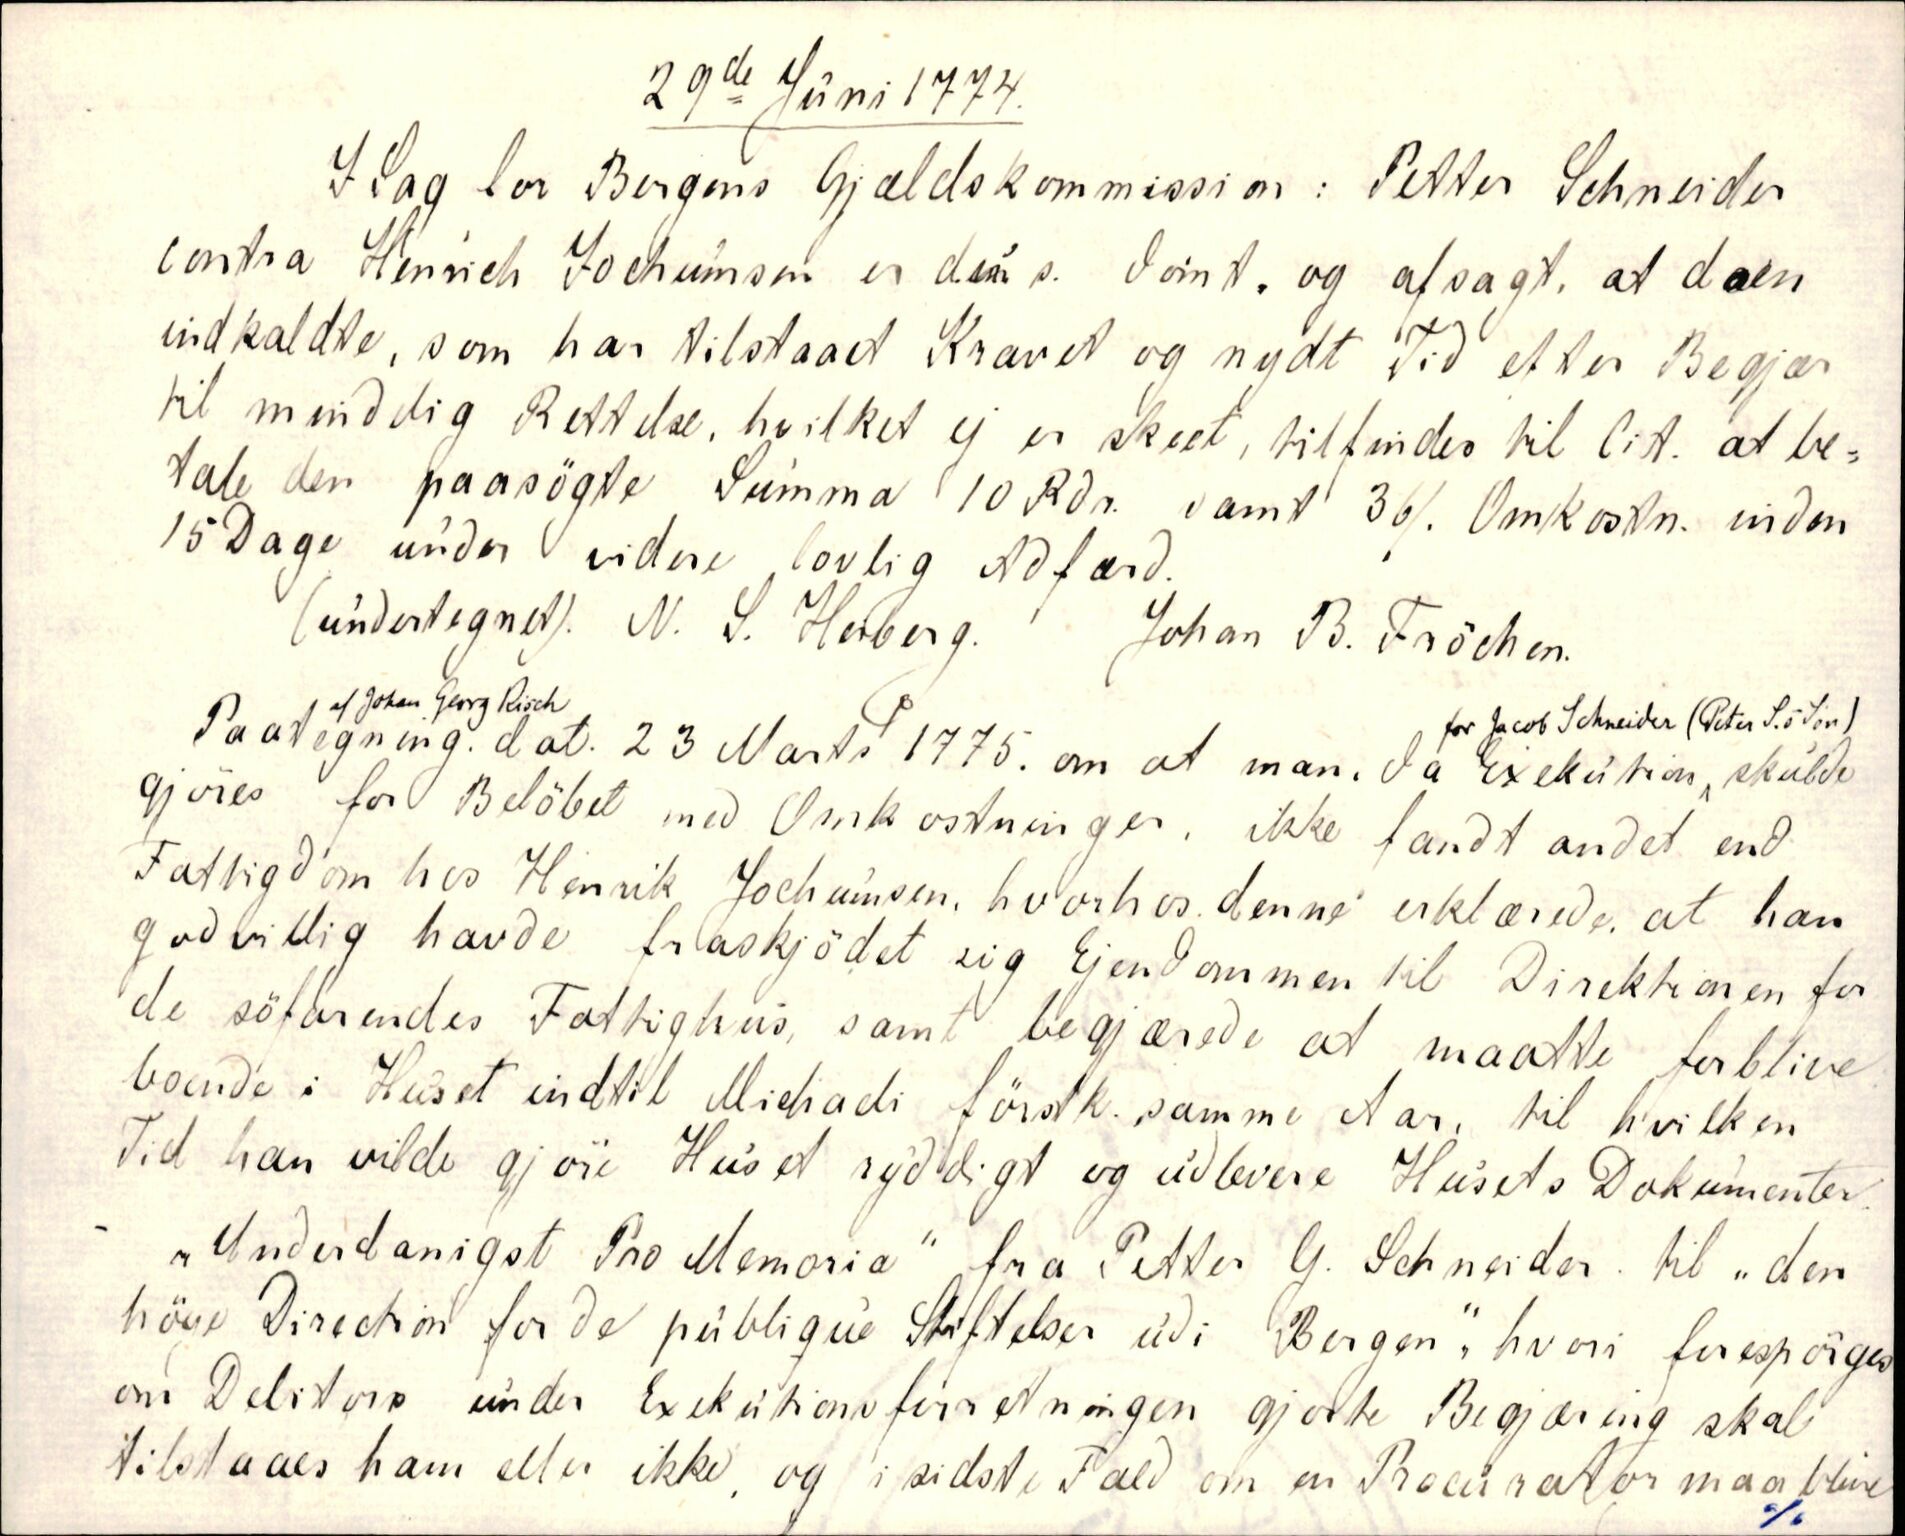 29de Juni 1774.
I Sag for Bergens Gjældskommission: Petter Schneider
contra Henrich Jochumsen er d. s. Dömt. og afsagt, at den
indkaldte, som har tilstaaet Kravet og nydt Tid efter Begjær
til mindelig Rettelse, hvilket ej er skeet, tilfindes til Cit. at be=
tale den paasögte Summa 10 Rdr. samt 36/. Omkostn. inden
15 Dage under videre lovlig Adfærd.
(undertegnet). N. S. Herberg. Johan B. Fröchen.
af Johan Georg Risch
for Jacob Schneider (Peter S.s Sön)
Paategning. dat. 23 Marts 1775. om at man, da Exekution, skulde
gjöres for Belöbet med Omkostninger, ikke fandt andet end
Fattigdom hos Henrik Jochumsen, hvorhos denne erklærede, at han
godvillig havde fraskjödet sig Ejendommen til Direktionen for
de söfarendes Fattighus, samt begjærede at maatte forblive
boende i Huset indtil Michaeli förstk. samme Aar, til hvilken
Tid han vilde gjöre Huset ryddigt og udlevere Husets Dokumenter.
- „Underdanigst Pro Memoria" fra Petter G. Schneider til „den
höye Direction for de publique Stiftelser udi Bergen", hvori forespörges
om Debitors under Exekutionsforretningen gjorte Begjæring skal
tilstaaes ham eller ikke, og i sidste Fald om en Procurator maa blive
%